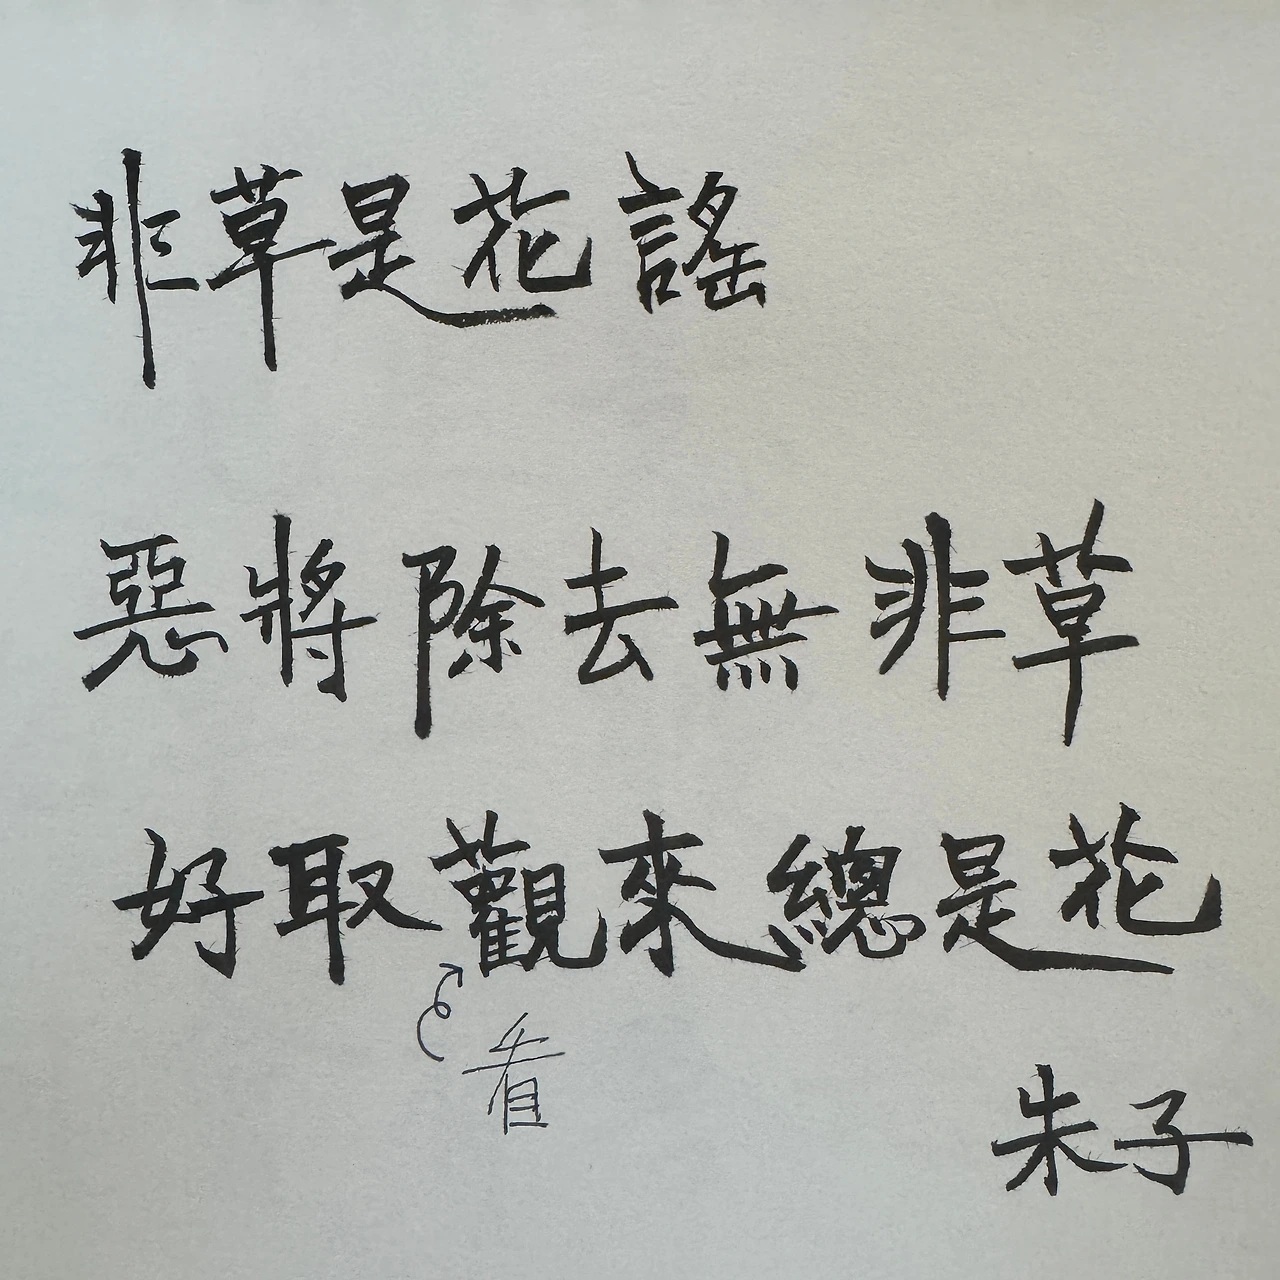 非草是花 謠
惡將除去無非草
好取觀來總是花
看
朱子